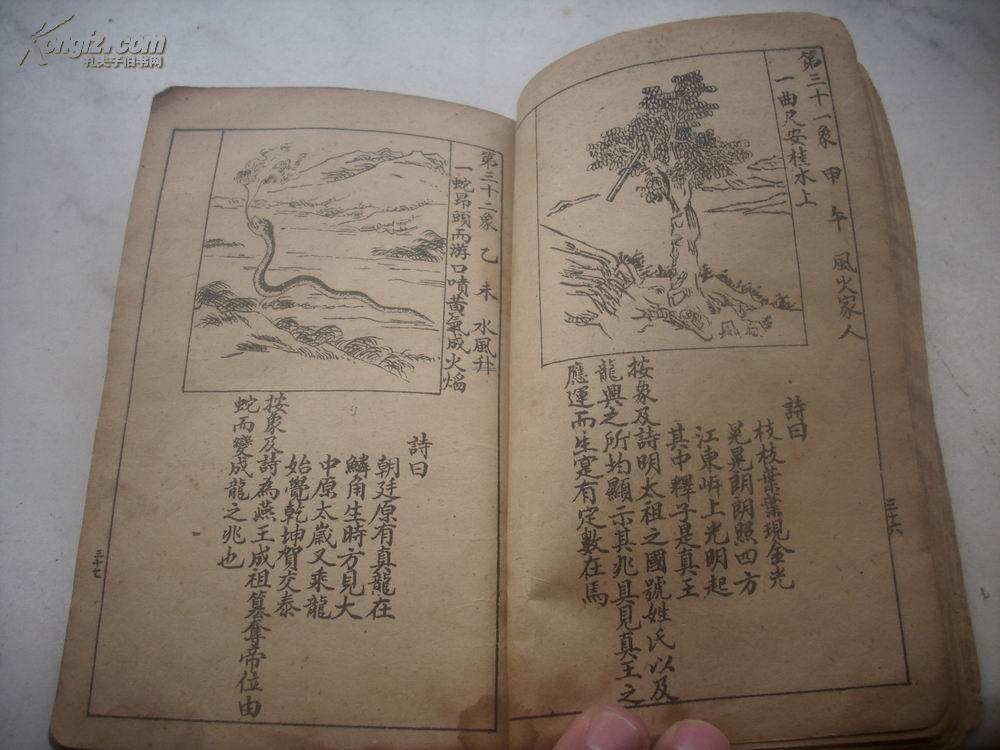 Kongfz.com
孔夫子旧书网
第三十一象 甲 午 風火家人
一曲尺安桂木上
詩曰
枝枝葉葉現金光
晃晃朗朗照四方
江東岍上光明起
其中釋子是真王
按象及詩明太祖之國號姓氏以及
龍興之所均顯示其兆具見真王之
應運而生寔有定數在焉
三十六
第三十二象 乙 未 水風升
一蛇昂頭而游口噴黄氣成火焰
詩曰
朝廷原有真龍在
鱗角生時方見大
中原太歲又乘龍
始覺乾坤賀交泰
按象及詩為燕王成祖篡奪帝位由
蛇而變成龍之兆也
三十七